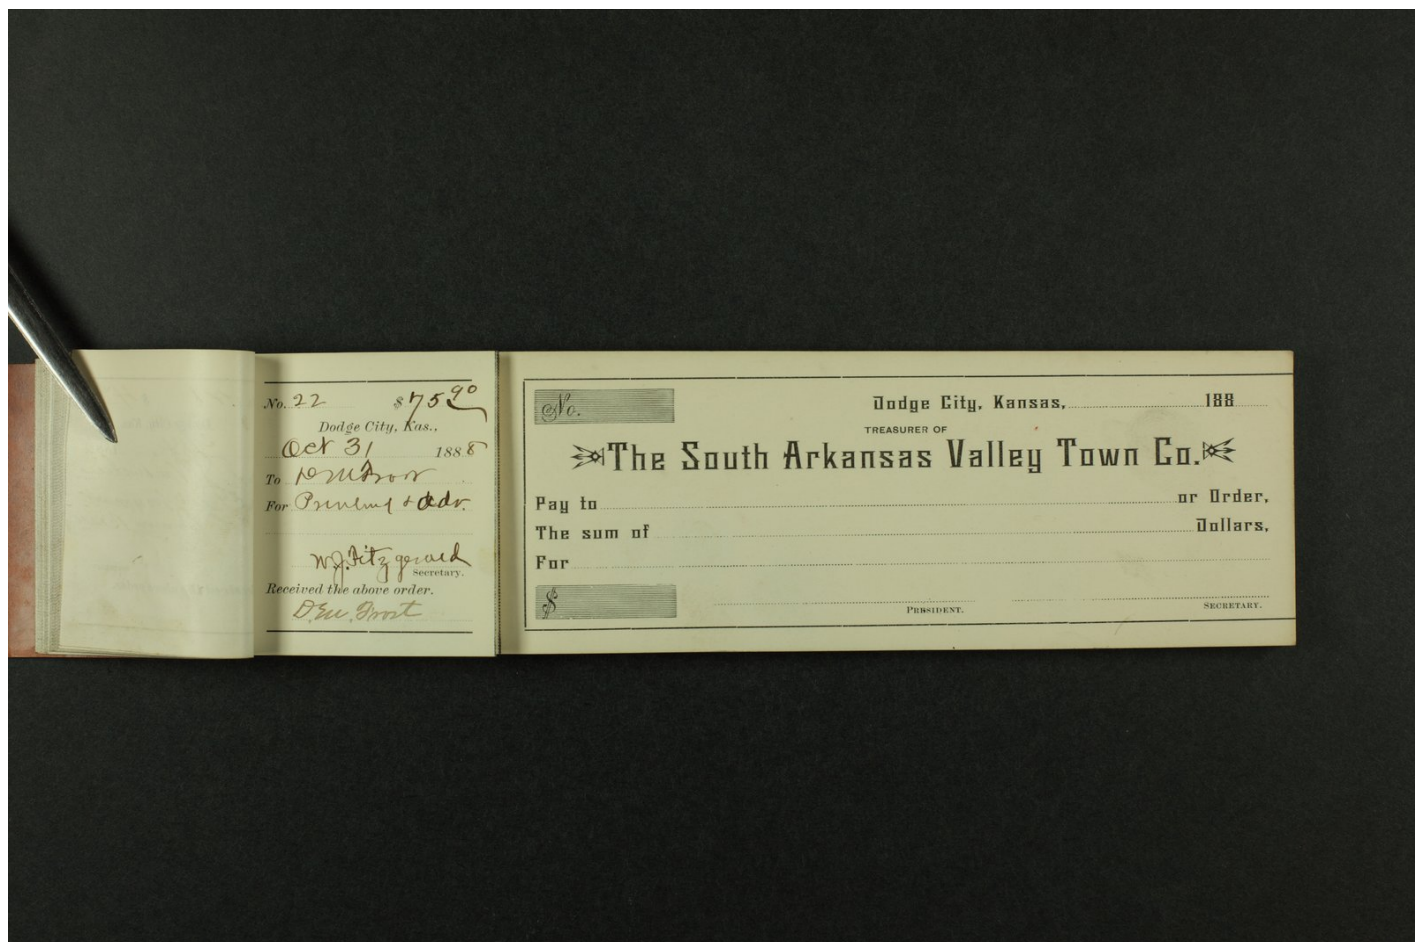 No. 22 $75 90
Dodge City, Kas.,
Oct 31 1888
To D M Frost
For Printing & Adv.
W.J. Fitzgerald
Secretary.
Received the above order.
D. M. Frost
No.
Dodge City, Kansas, 188
TREASURER OF
The South Arkansas Valley Town Co.
Pay to or Order,
The sum of Dollars,
For
$
PRESIDENT. SECRETARY.